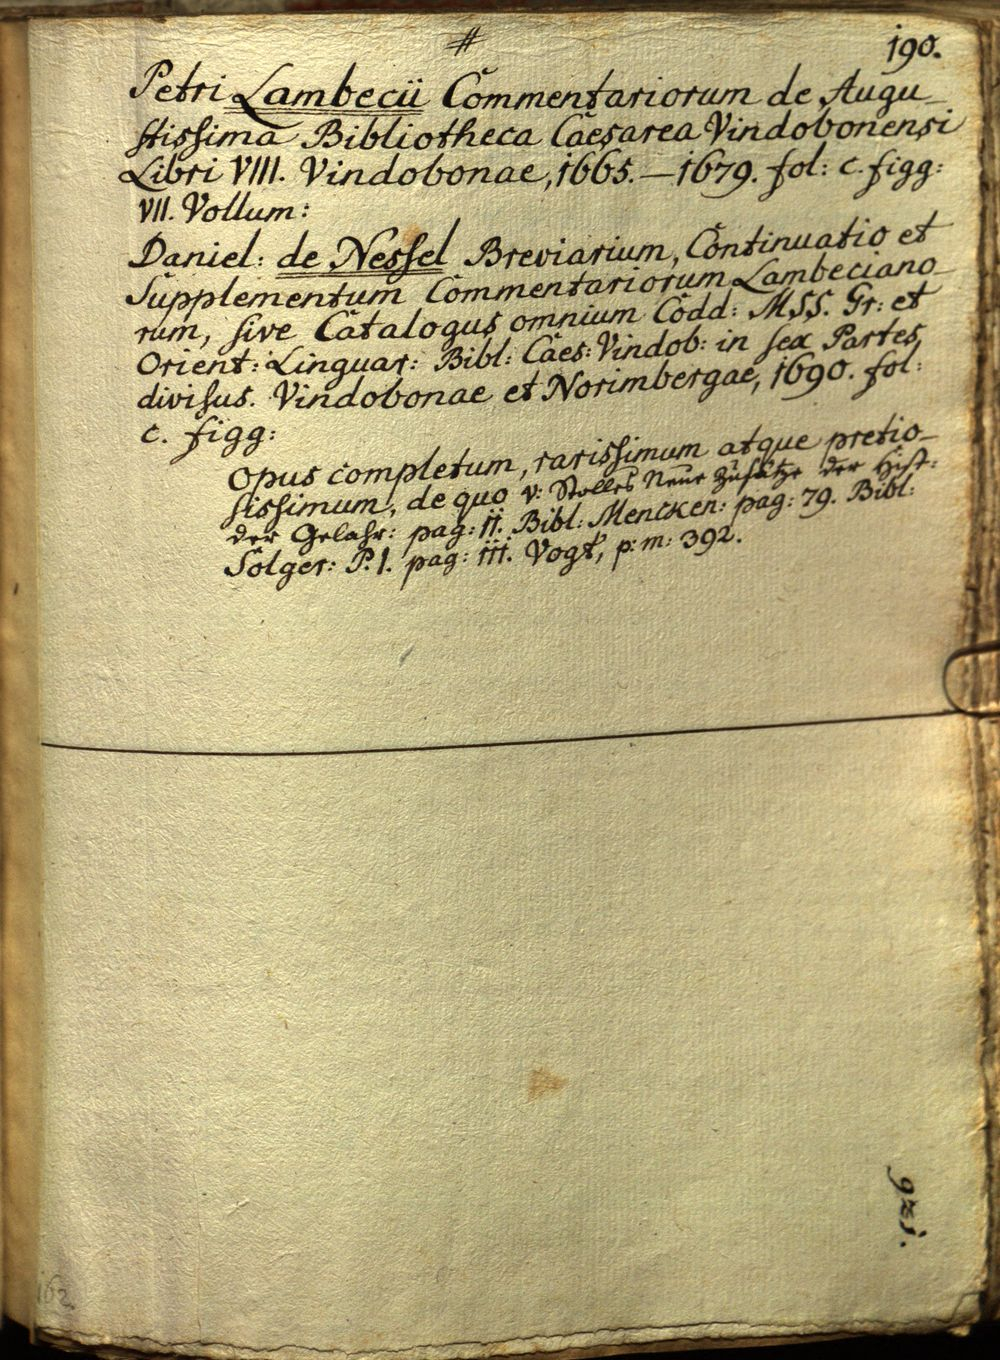 #
190.
Petri Lambecii Commentariorum de Augu-
stissima Bibliotheca Caesarea Vindobonensi
Libri VIII. Vindobonae, 1665.—1679. fol: c. figg:
VII. Vollum:
Daniel: de Nessel Breviarium, Continuatio et
Supplementum Commentariorum Lambeciano-
rum, sive Catalogus omnium Codd: MSS. Gr: et
Orient: Linguar: Bibl: Caes: Vindob: in sex Partes
divisus. Vindobonae et Norimbergae, 1690. fol:
c. figg:
Opus completum, rarissimum atque pretio-
sissimum, de quo v: Stolles Neue Zusätze der Hist:
der Gelahr: pag: 11. Bibl: Mencken: pag: 79. Bibl:
Solger: P. 1. pag: 111. Vogt, p: m: 392.
162